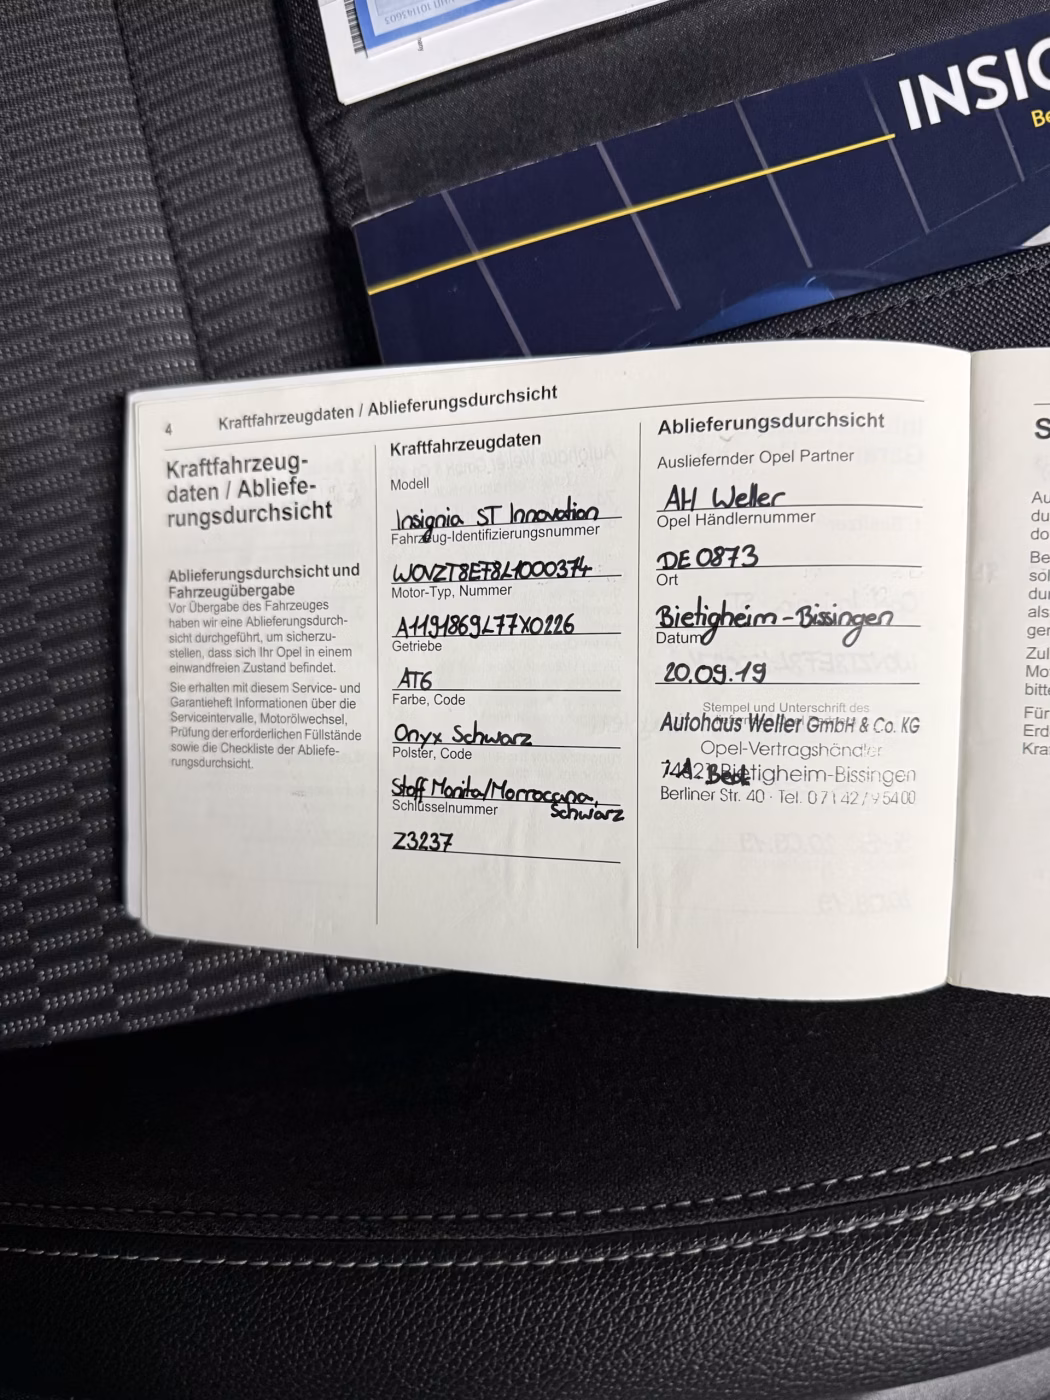 INSIG
Be
4 Kraftfahrzeugdaten / Ablieferungsdurchsicht
Kraftfahrzeug-
daten / Abliefe-
rungsdurchsicht
Ablieferungsdurchsicht und
Fahrzeugübergabe
Vor Übergabe des Fahrzeuges
haben wir eine Ablieferungsdurch-
sicht durchgeführt, um sicherzu-
stellen, dass sich Ihr Opel in einem
einwandfreien Zustand befindet.
Sie erhalten mit diesem Service- und
Garantieheft Informationen über die
Serviceintervalle, Motorölwechsel,
Prüfung der erforderlichen Füllstände
sowie die Checkliste der Abliefe-
rungsdurchsicht.
Kraftfahrzeugdaten
Modell
Insignia ST Innovation
Fahrzeug-Identifizierungsnummer
W0VZT8EF8L1000374
Motor-Typ, Nummer
A1191869L77X0226
Getriebe
AT6
Farbe, Code
Onyx Schwarz
Polster, Code
Stoff Monita/Morrocana,
Schwarz
Schlüsselnummer
Z3237
Ablieferungsdurchsicht
Ausliefernder Opel Partner
AH Weller
Opel Händlernummer
DE 0873
Ort
Bietigheim-Bissingen
Datum
20.09.19
Stempel und Unterschrift des
Autohaus Weller GmbH & Co. KG
Opel-Vertragshändler
Bietigheim-Bissingen
Berliner Str. 40 · Tel. 0 71 42 / 9 54 00
S
Au
du
do
Be
sol
dur
als
ger
Zul
Mo
bitte
Für
Erd
Kra